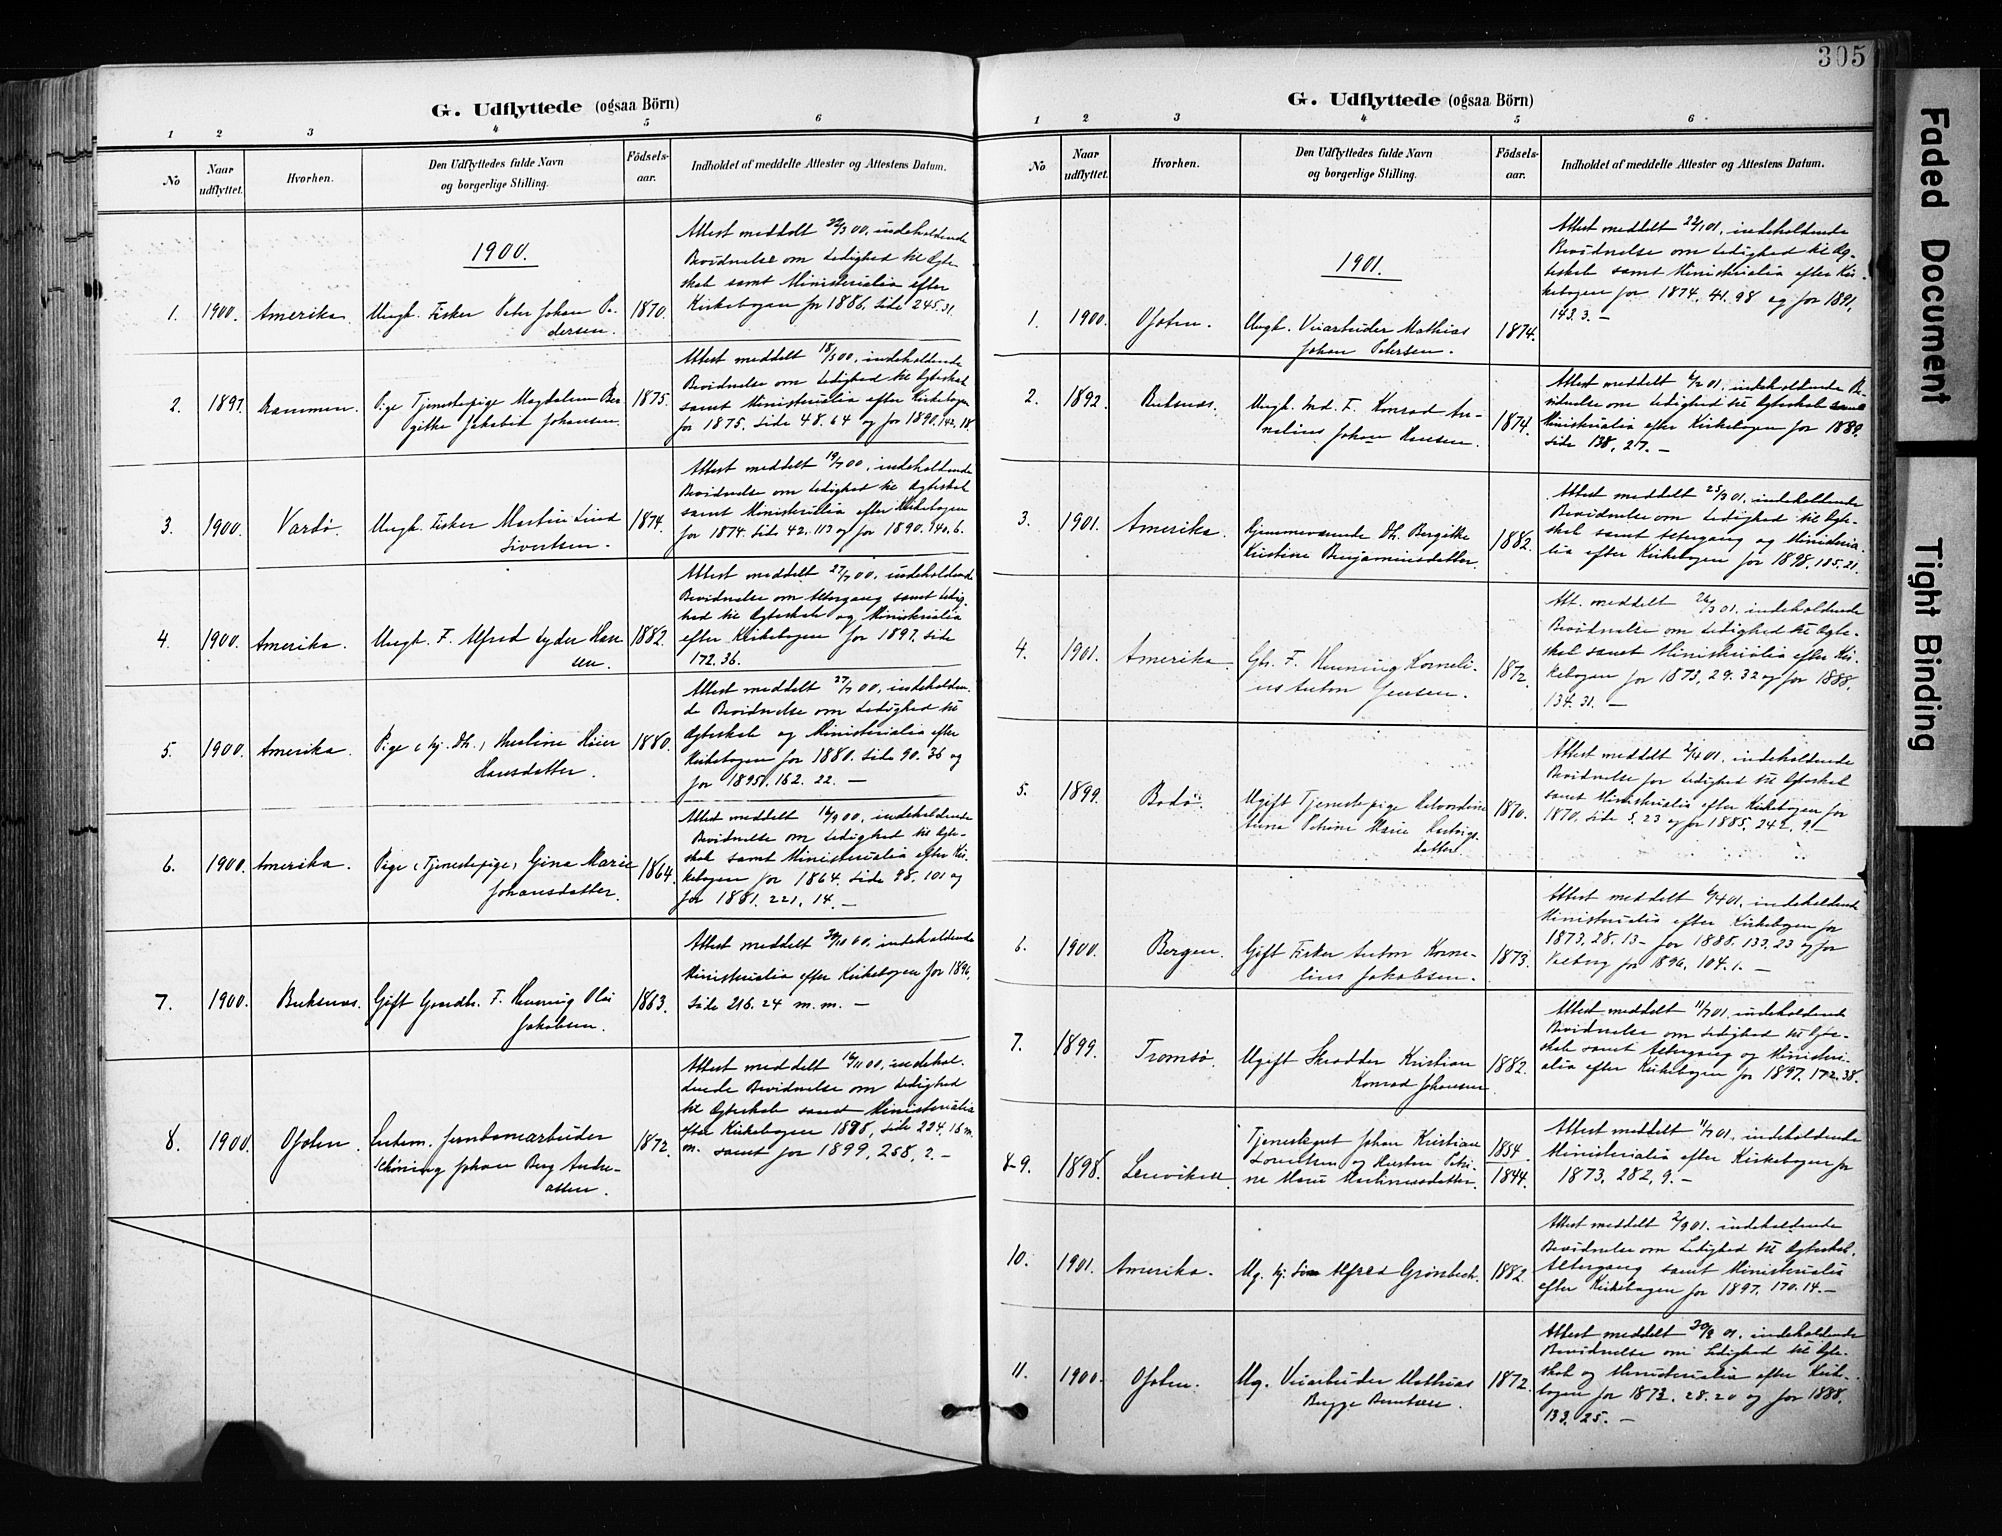 305
G. Udflyttede (ogsaa Börn)
1 2 3 4 5 6
No
Naar
udflyttet.
Hvorhen.
Den Udflyttedes fulde Navn
og borgerlige Stilling.
Födsels-
aar.
Indholdet af meddelte Attester og Attestens Datum.
1900.
1. 1900. Amerika. Ungk. Fisker Peter Johan Pe-
dersen. 1870.
Attest meddelt 22/3 00, indeholdende
Bevidnelse om Ledighed til Ægte-
skab samt Ministerialia efter
Kirkebogen for 1886. side 245.31.
2. 1897. Drammen. Pige Tjenestepige Magdalena Ber
gitke Jakobie Johansen. 1875.
Attest meddelt 18/5 00, indeholdende
Bevidnelse om Ledighed til Ægteskab
samt Ministerialia efter Kirkebogen
for 1875. side 48.64 og for 1890.142.18.
3. 1900. Vardø. Ungk. Fisker Martin Lind
Sivertsen. 1874.
Attest meddelt 19/7 00, indeholdende
Bevidnelse om Ledighed til Ægteskab
samt Ministerialia efter Kirkebogen
for 1874. Side 42.113 og for 1890.140.6.
4. 1900. Amerika. Ungk. F. Alfred Lyder Han
sen. 1882.
Attest meddelt 27/7 00, indeholdende
Bevidnelse om Altergang samt Ledig-
hed til Ægteskab og Ministerialia
efter Kirkebogen for 1897. side
172.36.
5. 1900. Amerika. Pige (hj. Dh.) Høier
Hansdatter. 1880.
Attest meddelt 27/7 00, indeholden-
de Bevidnelse om Ledighed til
Ægteskab og Ministerialia efter
Kirkebogen for 1880. side 90.36 og
for 1895. 162. 22. —
6. 1900. Amerika. Pige (Tjenestepige) Gina Marie
Johansdatter. 1864.
Attest meddelt 16/9 00, indeholdende
Bevidnelse om Ledighed til Ægte-
skab samt Ministerialia efter Kir-
kebogen for 1864. side 98. 101 og
for 1881. 221, 14. —
7. 1900. Buksnæs. Gift Gmdb. F. Henning Olai
Jakobsen. 1863.
Attest meddelt 30/10 60, indeholdende
Ministerialia efter Kirkebogen for 1896,
Side 216.24 m.m. —
8. 1900. Ofoten. Jernbanearbeider
Schöning Johan Berg Andre-
assen. 1872.
Attest meddelt 16/11 00, indehol-
dende Bevidnelse om Ledighed
til Ægteskab samt Ministerialia
efter Kirkebogen 1888, side 224.16 m.
m. samt for 1899, 258, 2. —
G. Udflyttede (ogsaa Börn)
1 2 3 4 5 6
No
Naar
udflyttet.
Hvorhen.
Den Udflyttedes fulde Navn
og borgerlige Stilling.
Födsels-
aar.
Indholdet af meddelte Attester og Attestens Datum.
1901.
1. 1900. Ofoten. Ungk. Veiarbeider Mathias
Johan Petersen. 1874.
Attest meddelt 22/1 01, indeholdende
Bevidnelse om Ledighed til Æg-
teskab samt Ministerialia efter Kir-
kebogen for 1874. 41. 98 og for 1891,
143.3. —
2. 1892. Buksnæs. Ungk. Ind. F. Konrad
Johan Hansen. 1874.
Attest meddelt 6/2 01, indeholdende Be-
vidnelse om Ledighed til Ægteskab samt
Ministerialia efter Kirkebogen for 1889.
side 138, 27. —
3. 1901. Amerika. Hjemmeværende Dh. Bergitke
Kristine Benjaminsdatter. 1882.
Attest meddelt 25/3 01, indeholdende
Bevidnelse om Ledighed til Ægte-
skab samt Altergang og Ministeria-
lia efter Kirkebogen for 1898. 185.21.
4. 1901. Amerika. Gbr. F. Henning Korneli-
us Anton Jensen. 1872.
Att. meddelt 26/3 01, indeholdende
Bevidnelse om Ledighed til Ægte-
skab samt Ministerialia efter Kir-
kebogen for 1873, 29. 32 og for 1888,
134.31. —
5. 1899. Bodø. Ugift Tjenestepige
Anna Petrine Marie Hartvigs-
datter. 1870.
Attest meddelt 2/4 01, indeholdende
Bevidnelse for Ledighed til Ægteskab
samt Ministerialia efter Kirkebogen for
1870. side 5. 23 og for 1885. 242. 9. —
6. 1900. Bergen. Gift Fisker Anton Korne-
lius Jakobsen. 1873.
Attest meddelt 6/4 01, indeholdende
Ministerialia efter Kirkebogen for
1873. 28. 13 – for 1888. 133. 23 og for
Valberg for 1896. 104.1. —
7. 1899. Tromsø. Ugift Skrædder Kristian
Konrad Johansen 1882.
Attest meddelt 11/7 01, indeholdende
Bevidnelse om Ledighed til Ægte-
skab samt Altergang og Ministeri-
alia efter Kirkebogen for 1897. 172.38.
8-9. 1898. Lenviken. Tjenestegut Johan Kristian
Lorentsen og Hustru Petri-
ne Marie Martinusdatter. 1854
1844.
Attest meddelt 11/7 01, indeholdende
Ministerialia efter Kirkebogen for
1873, 282, 9. —
10. 1901. Amerika. Ug. hj. Søn Alfred Grønbech. 1882.
Attest meddelt 2/9 01. indeholdende
Bevidnelse om Ledighed til Ægteskab,
Altergang samt Ministerialia
efter Kirkebogen for 1897. 170.14. —
11. 1900. Ofoten. Ug. Veiarbeider Mathias
Bugge Berntsen. 1872.
Attest meddelt 30/9 01, indeholdende
Bevidnelse om Ledighed til Ægte-
skab og Ministerialia efter Kirke-
bogen for 1873. 28.20 og for 1888.
133.25. —
Faded Document
Tight Binding